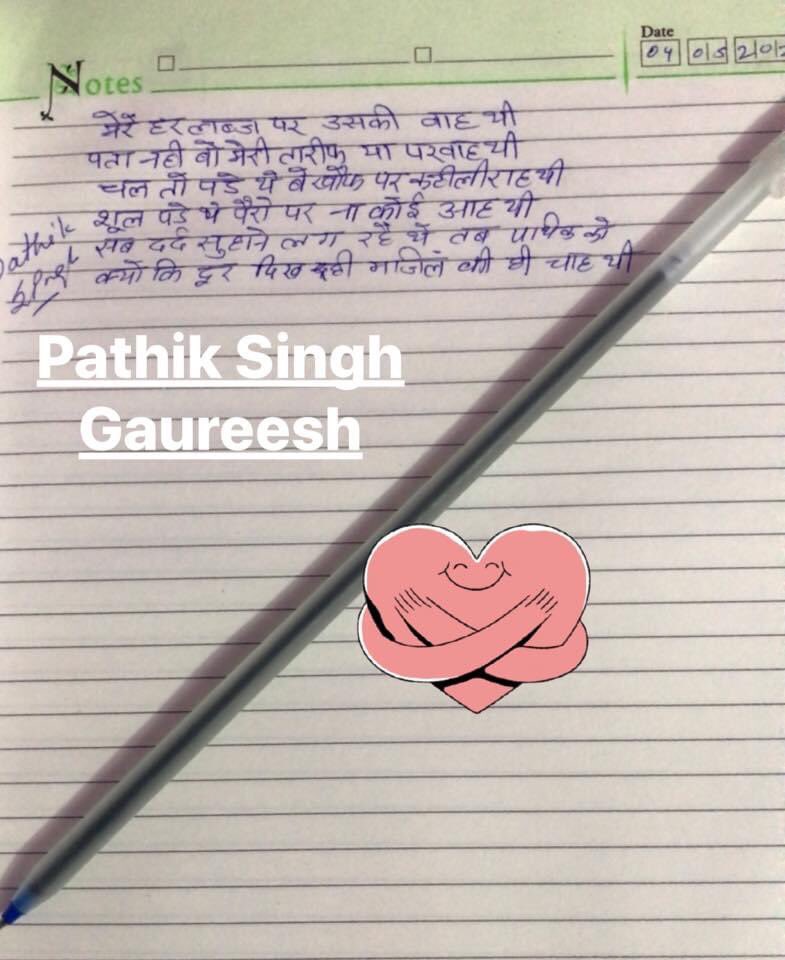 Date
04 05 202
Notes
मेरे हर लब्ज पर उसकी वाह थी
पता नही वो मेरी तारीफ या परवाह थी
चल तो पडे थे बेखौफ पर राह थी
शूल पडे थे पैरो पर ना कोई आह थी
सब दर्द सुहाने लग रहे थे तब पथिक को
क्यो कि दूर दिख रही मंजिल की ही चाह थी
Pathik
Pathik Singh
Gaureesh